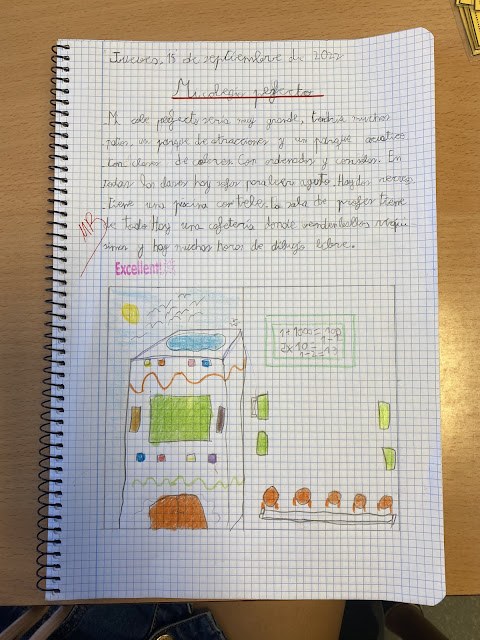 Jueves, 15 de septiembre de 2022
Mi colegio pefecto
Mi cole pefecto seria muy grande, tendria muchos
patios, un parque de atracciones y un parque acuatico
con clases de colores. Con ordenados y comodos. En
todas las clases hay sofas para leer agusto. Hay dos recreos.
Tiene una piscina con tele. La sala de profes tiene
de todo. Hay una cafeteria donde venden bollos riqui
simos y hay muchas horas de dibujo libre.
MB
Excellent!
1+1000=100
2x10=1-1
1-2=13